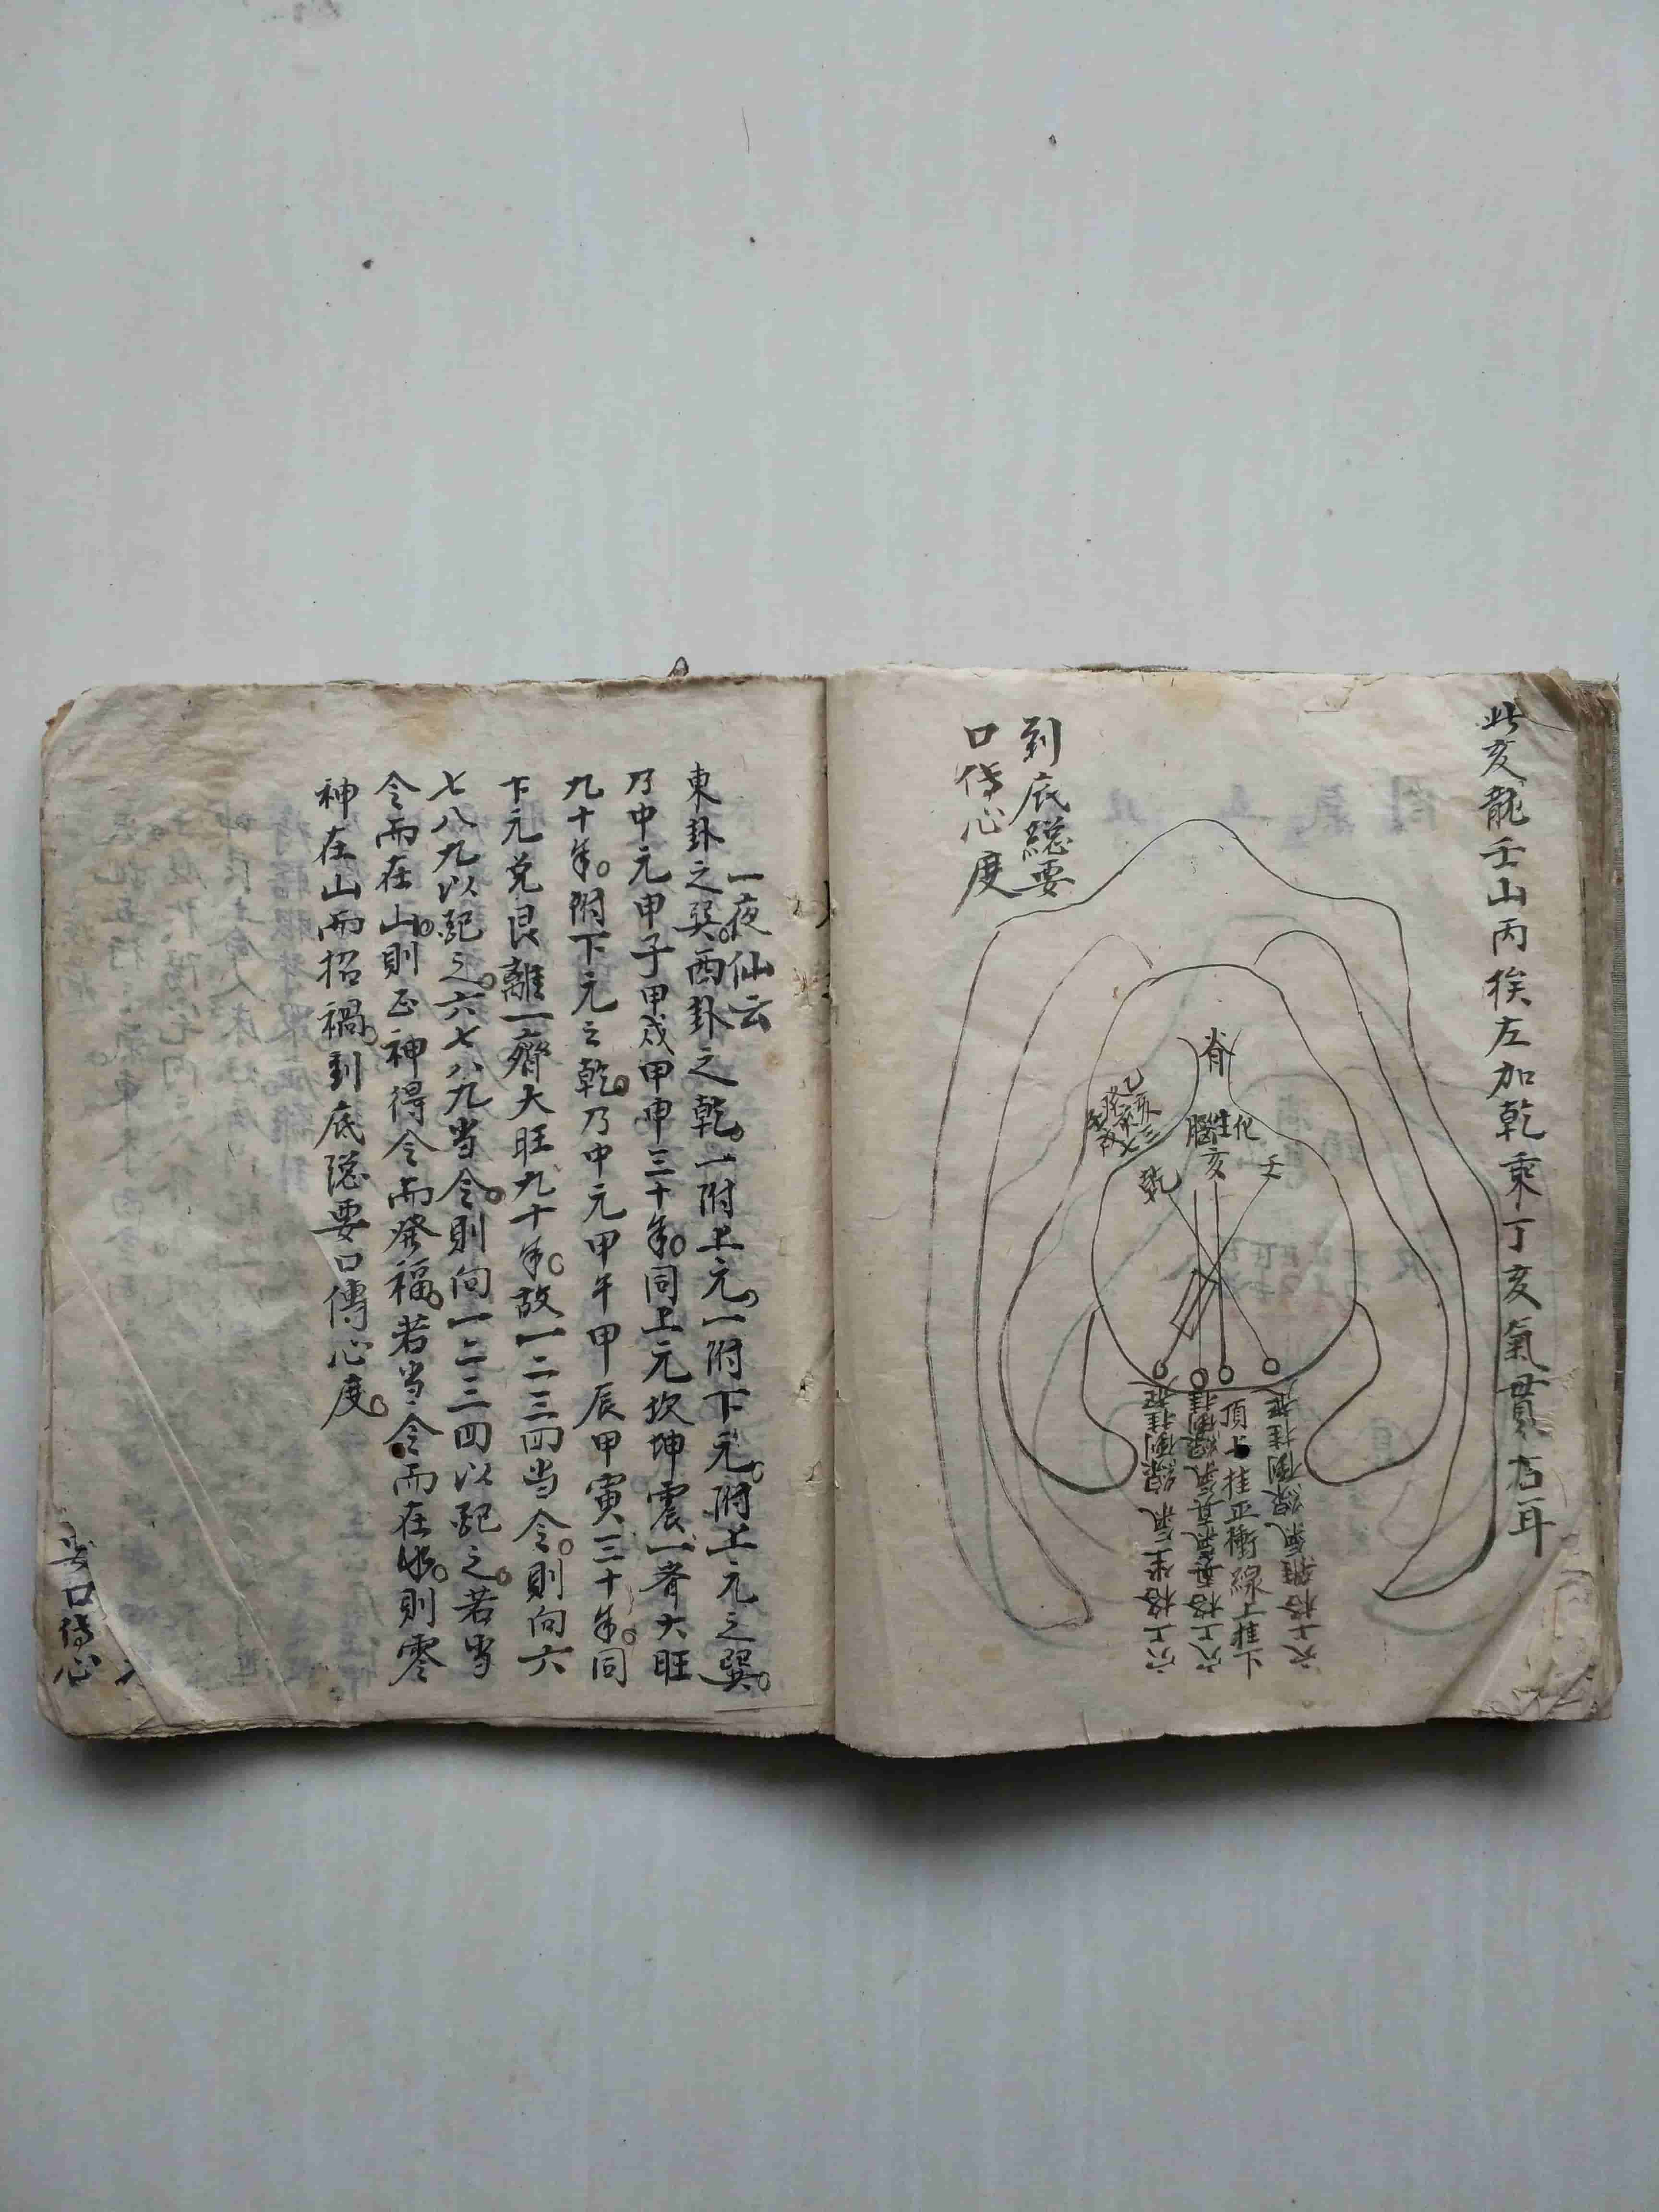 此亥龍壬山丙挨左加乾乘丁亥氣貫右耳
脊
腦生化
亥
壬
乾
乙亥
頂上
挂正衝線
穴上格坐氣線倒挂
到底總要
口傳心度
一夜仙云
東卦之巽。西卦之乾。一附上元。一附下元。附上元之巽。
乃中元甲子甲戌甲申三十年。同上元坎坤震一齊大旺
九十年。附下元之乾。乃中元甲午甲辰甲寅三十年。同
下元兌艮離一齊大旺九十年。故一二三四当令。則向六
七八九以配之。六七八九当令。則向一二三四以配之。若当
令而在山。則正神得令而發福。若当令而在水。則零
神在山而招禍。到底總要口傳心度。
要口傳心